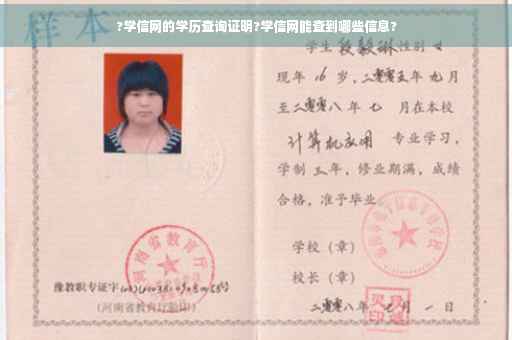 ?学信网的学历查询证明?学信网能查到哪些信息?
样本
学生 段毅琳 性别 女
现年 16 岁，二零零五年 九 月
至二零零八年 七 月在本校
计算机应用 专业学习，
学制 三 年，修业期满，成绩
合格，准予毕业。
学校（章）
校长（章）
二零零八年 七 月 一 日
豫教职专证字
（河南省教育厅验印）
河南省教育厅